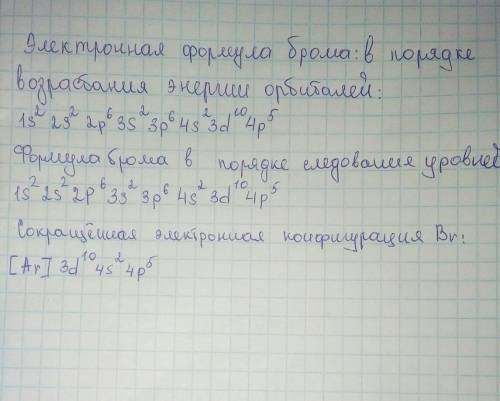 Электронная формула брома: в порядке
возрастания энергии орбиталей:
1s² 2s² 2p⁶ 3s² 3p⁶ 4s² 3d¹⁰ 4p⁵
Формула брома в порядке следования уровней
1s² 2s² 2p⁶ 3s² 3p⁶ 4s² 3d¹⁰ 4p⁵
Сокращённая электронная конфигурация Br:
[Ar] 3d¹⁰ 4s² 4p⁵